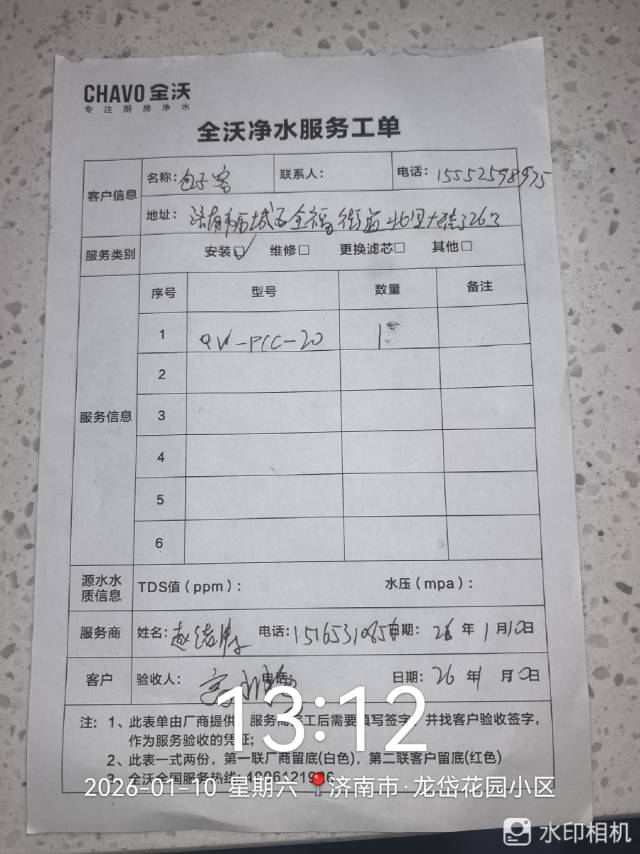 CHAVO 全沃
专注厨房净水
全沃净水服务工单
客户信息 名称: 包子客 联系人: 电话: 15552598975
地址: 济南市历城区全福街道北
服务类别 安装☑ 维修□ 更换滤芯□ 其他□
服务信息 序号 型号 数量 备注
1 QW-PCC-20 1
2
3
4
5
6
源水水质信息 TDS值（ppm）: 水压（mpa）:
服务商 姓名: 赵 电话: 日期: 26 年 1 月 10 日
客户 验收人: 日期: 26 年 1 月 10 日
13:12
注: 1、此表单由厂商提供，服务商完工后需要填写签字，并找客户验收签字，
作为服务验收的凭证;
2、此表一式两份，第一联厂商留底(白色)，第二联客户留底(红色)
3、全沃全国服务热线:
2026-01-10 星期六 济南市·龙岱花园小区
水印相机